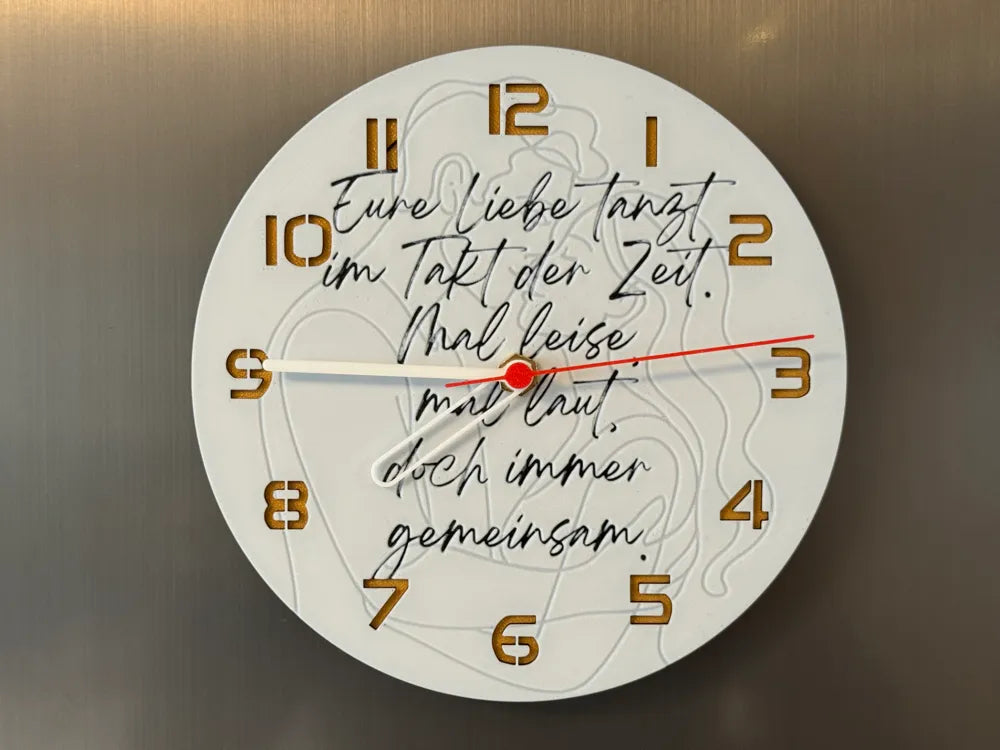 12
11 1
Eure Liebe tanzt
10 2
im Takt der Zeit.
Mal leise,
9 3
mal laut,
doch immer
8 4
gemeinsam.
7 5
6